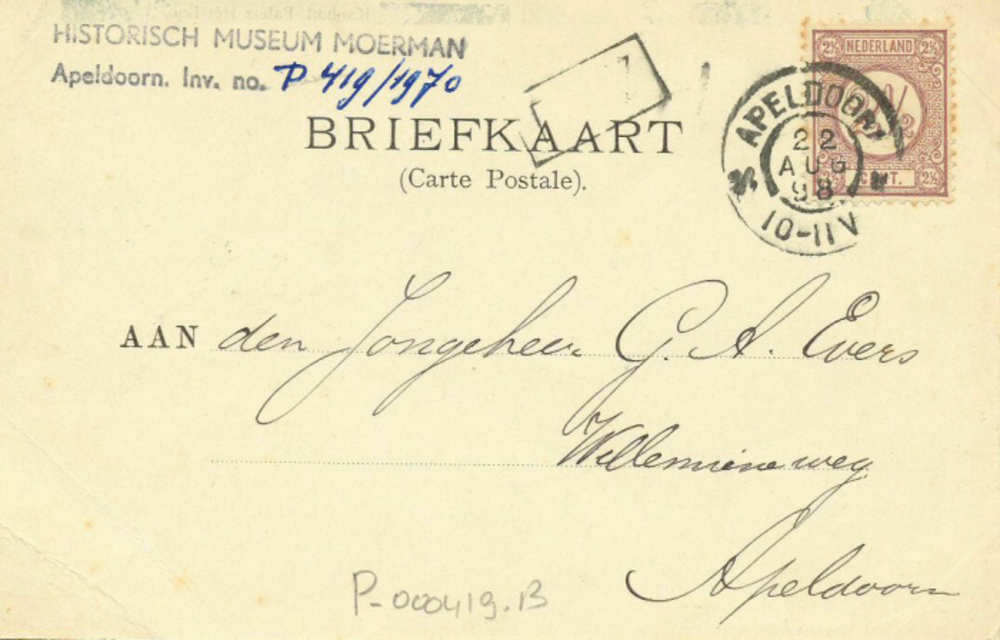 HISTORISCH MUSEUM MOERMAN
Apeldoorn. Inv. no. P 419/1970
BRIEFKAART
(Carte Postale).
2½ NEDERLAND 2½
2½ CENT. 2½
APELDOORN
22
AUG
98
10-11V
AAN den Jongeheer G. A. Evers
Willemineweg
Apeldoorn
P-000419.B